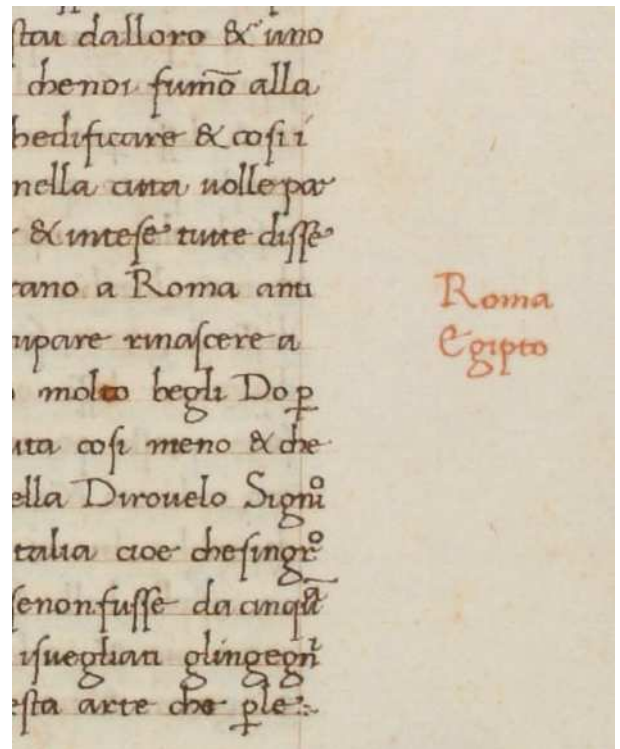 stati dalloro & uno
chenoi fumō alla
hedificare & cosi i
nella citta uolle par
& intese tutte disse
ano a Roma anti
upare rinascere a
molto begli Do p̱
uta cosi meno & che
ella Dirouelo Signi͛o
talia cioe chesingrº
senonfusse da cinqª
isuegliati glingegni
sta arte che p̱le
Roma
Egipto